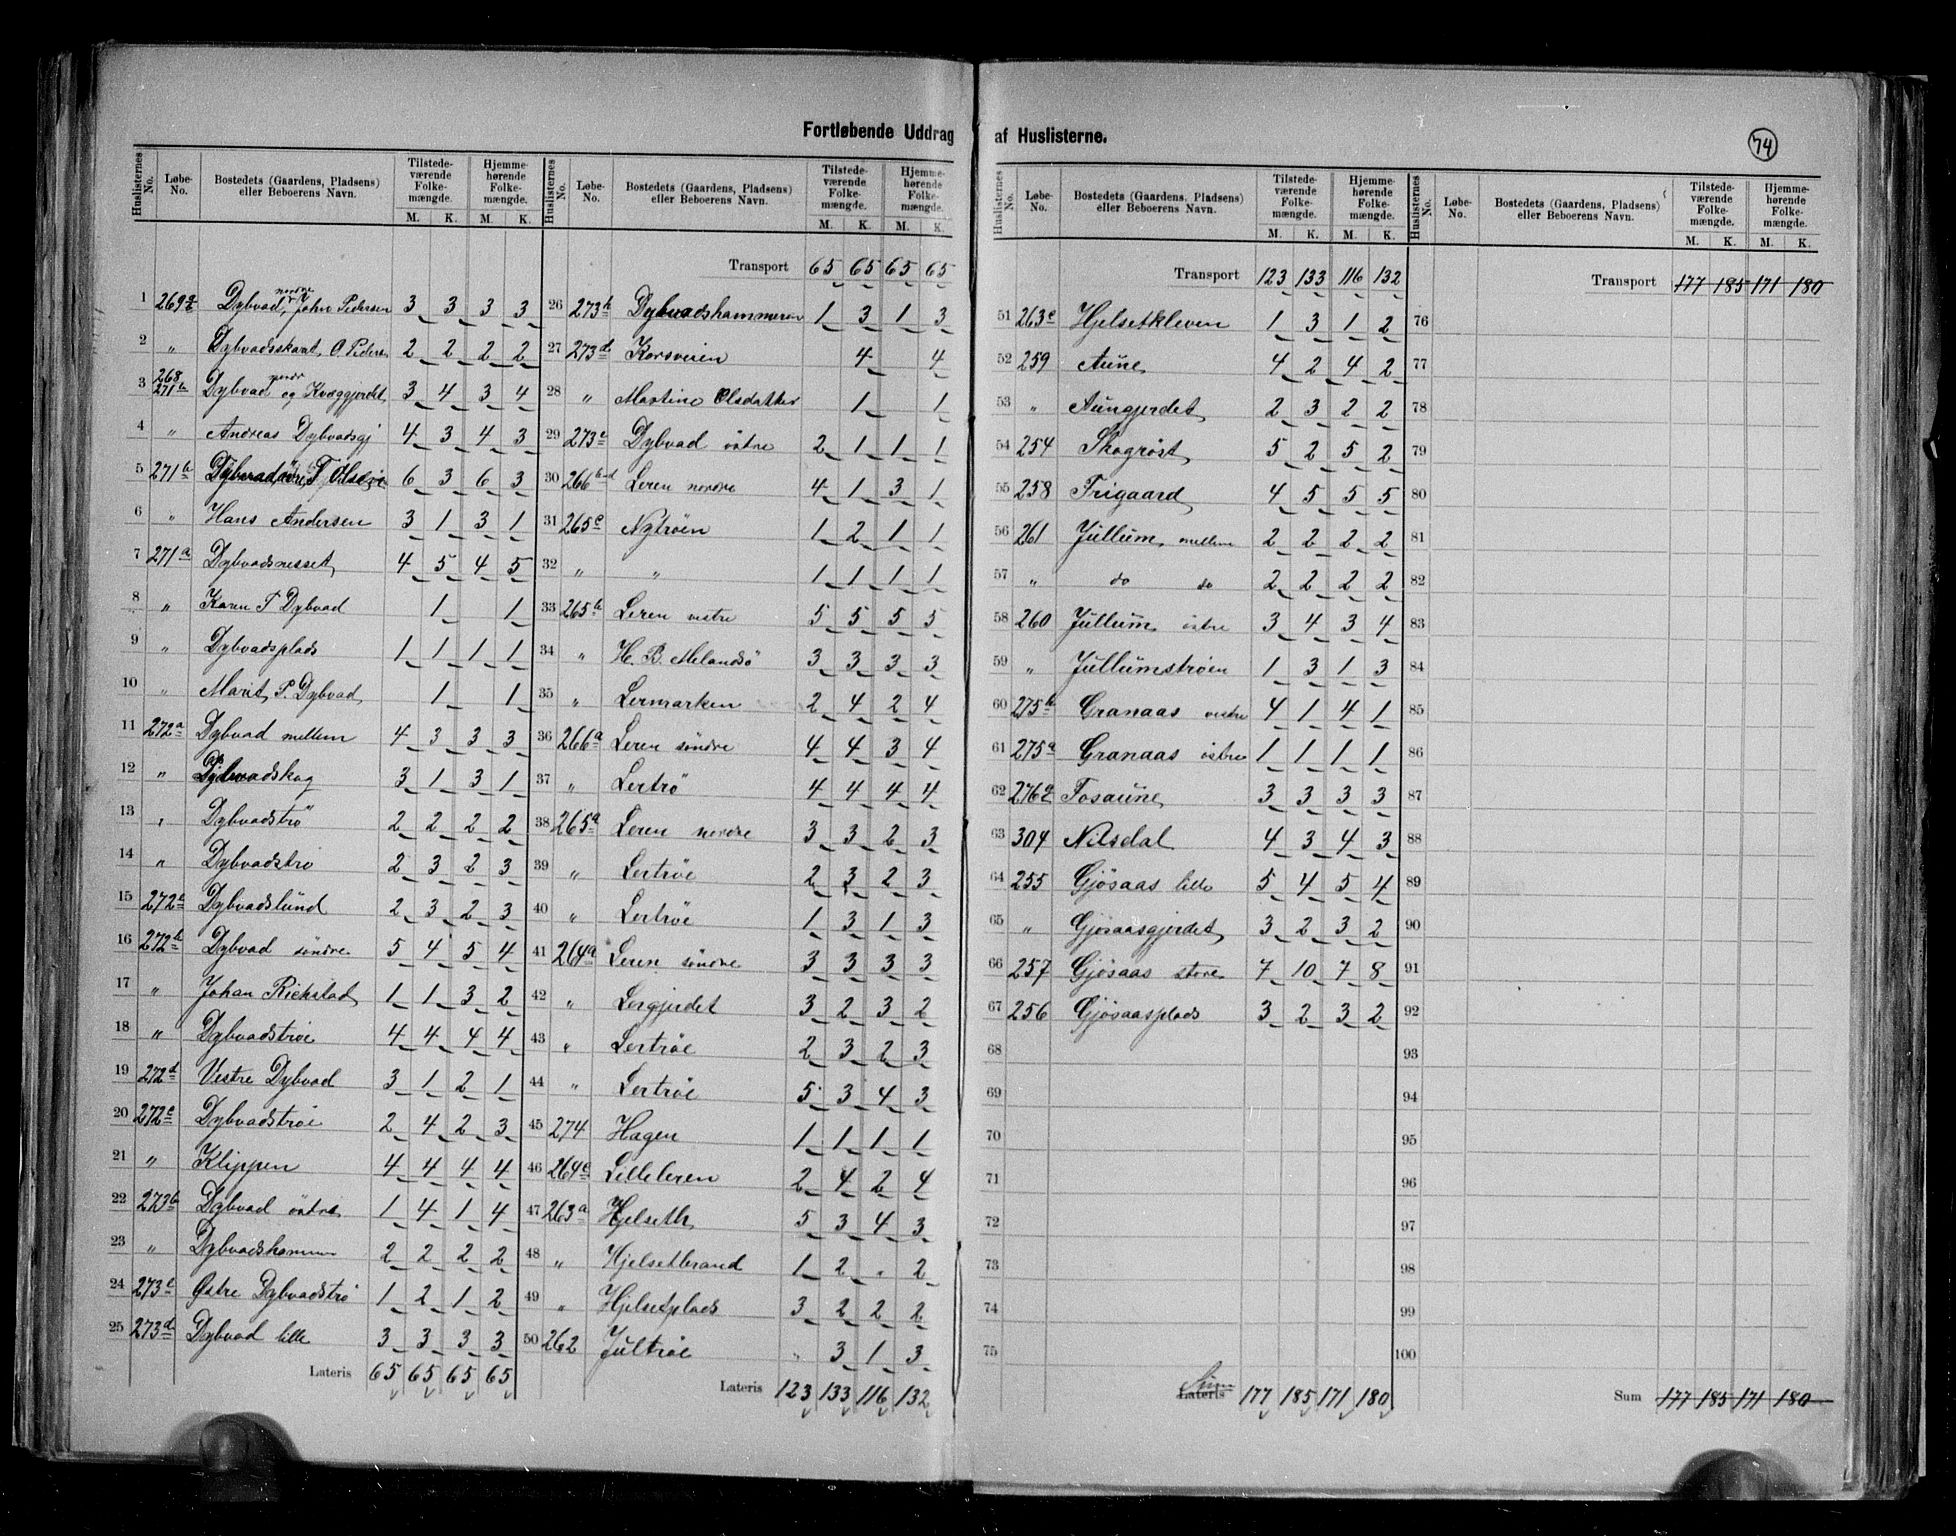 Fortløbende Uddrag af Huslisterne.
74
Huslisternes No. Løbe-No. Bostedets (Gaardens, Pladsens) eller Beboerens Navn. Tilstedeværende Folkemængde. M. K. Hjemmehørende Folkemængde. M. K.
1 269 Dybvad nordre, John Pedersen 3 3 3 3
2 " Dybvadsskant, O. Peders 2 2 2 2
3 268 271b Dybvad nordr og Kvæggjerdet 3 4 3 4
4 " Andreas Dybvadsgj 4 3 4 3
5 271b 6 3 6 3
6 " Hans Andersen 3 1 3 1
7 271a Dybvadsnesset 4 5 4 5
8 " Karen T Dybvad 1 1
9 " Dybvadsplads 1 1 1 1
10 " Marit P. Dybvad 1 1
11 272a Dybvad mellem 4 3 3 3
12 " Dybvadskog 3 1 3 1
13 " Dybvadströ 2 2 2 2
14 " Dybvadströ 2 3 2 3
15 272c Dybvadslund 2 3 2 3
16 272b Dybvad søndre 5 4 5 4
17 " Johan Rickstad 1 1 3 2
18 " Dybvadstrøe 4 4 4 4
19 272d Vestre Dybvad 3 1 2 1
20 272e Dybvadstrøe 2 4 2 3
21 " Klippen 4 4 4 4
22 273b Dybvad östre 1 4 1 4
23 " Dybvadshamm 2 2 2 2
24 273c Østre Dybvadströ 1 2 1 2
25 273d Dybvad lille 3 3 3 3
Lateris 65 65 65 65
Huslisternes No. Løbe-No. Bostedets (Gaardens, Pladsens) eller Beboerens Navn. Tilstedeværende Folkemængde. M. K. Hjemmehørende Folkemængde. M. K.
Transport 65 65 65 65
26 273b Dybvadshammeren 1 3 1 3
27 273d Korsveien 4 4
28 " Martine Olsdatter 1 1
29 273c Dybvad östre 2 1 1 1
30 266b-d Leren nordre 4 1 3 1
31 265c Nytröen 1 2 1 1
32 " " 1 1 1 1
33 265b Leren vestre 5 5 5 5
34 " H. B. Melandsö 3 3 3 3
35 " Lermarken 2 4 2 4
36 266a Leren söndre 4 4 3 4
37 " Lertrö 4 4 4 4
38 265a Leren nordre 3 3 2 3
39 " Lertröe 2 3 2 3
40 " Lertröe 1 3 1 3
41 264a Leren söndre 3 3 3 3
42 " Lergjerdet 3 2 3 2
43 " Lertröe 2 3 2 3
44 " Lertröe 5 3 4 3
45 274 Hagen 1 1 1 1
46 264c Lilleleren 2 4 2 4
47 263a Hjelseth 5 3 4 3
48 " Hjelsetbrand 1 2 " 2
49 " Hjelsetplads 3 2 2 2
50 262 Jultröe " 3 1 3
Lateris 123 133 116 132
Huslisternes No. Løbe-No. Bostedets (Gaardens, Pladsens) eller Beboerens Navn. Tilstedeværende Folkemængde. M. K. Hjemmehørende Folkemængde. M. K.
Transport 123 133 116 132
51 263c Hjelsetkleven 1 3 1 2
52 259 Aune 4 2 4 2
53 " Aungjerdet 2 3 2 2
54 254 Skogröst 5 2 5 2
55 258 Trigaard 4 5 5 5
56 261 Jullum mellem 2 2 2 2
57 " do do 2 2 2 2
58 260 Jullum östre 3 4 3 4
59 " Jullumströen 1 3 1 3
60 275b Granaas vestre 4 1 4 1
61 275a Granaas östre 1 1 1 1
62 276 Tosaune 3 3 3 3
63 304 Nilsdal 4 3 4 3
64 255 Gjösaas lille 5 4 5 4
65 " Gjösaasgjerdet 3 2 3 2
66 257 Gjösaas store 7 10 7 8
67 256 Gjösaasplads 3 2 3 2
68
69
70
71
72
73
74
75
Sum Lateris 177 185 171 180
Huslisternes No. Løbe-No. Bostedets (Gaardens, Pladsens) eller Beboerens Navn. Tilstedeværende Folkemængde. M. K. Hjemmehørende Folkemængde. M. K.
Transport 177 185 171 180
76
77
78
79
80
81
82
83
84
85
86
87
88
89
90
91
92
93
94
95
96
97
98
99
100
Sum 177 185 171 180